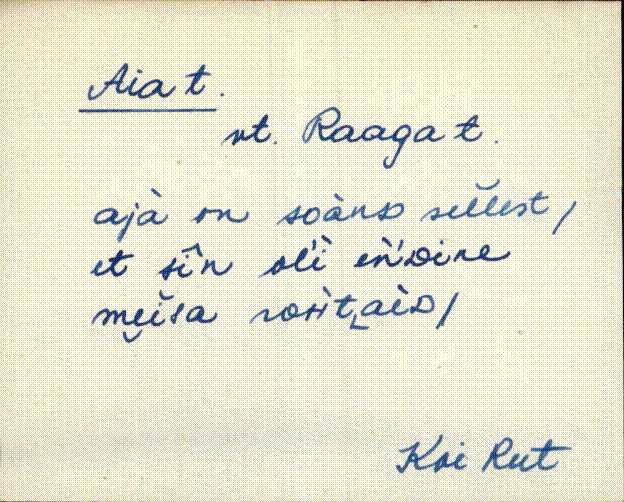 Aia t.
vt. Raaga t.
ajà on soànD sèllest /
et sîn oli èǹDine
mẽisa rohìt‿aèD /
Koi Rut